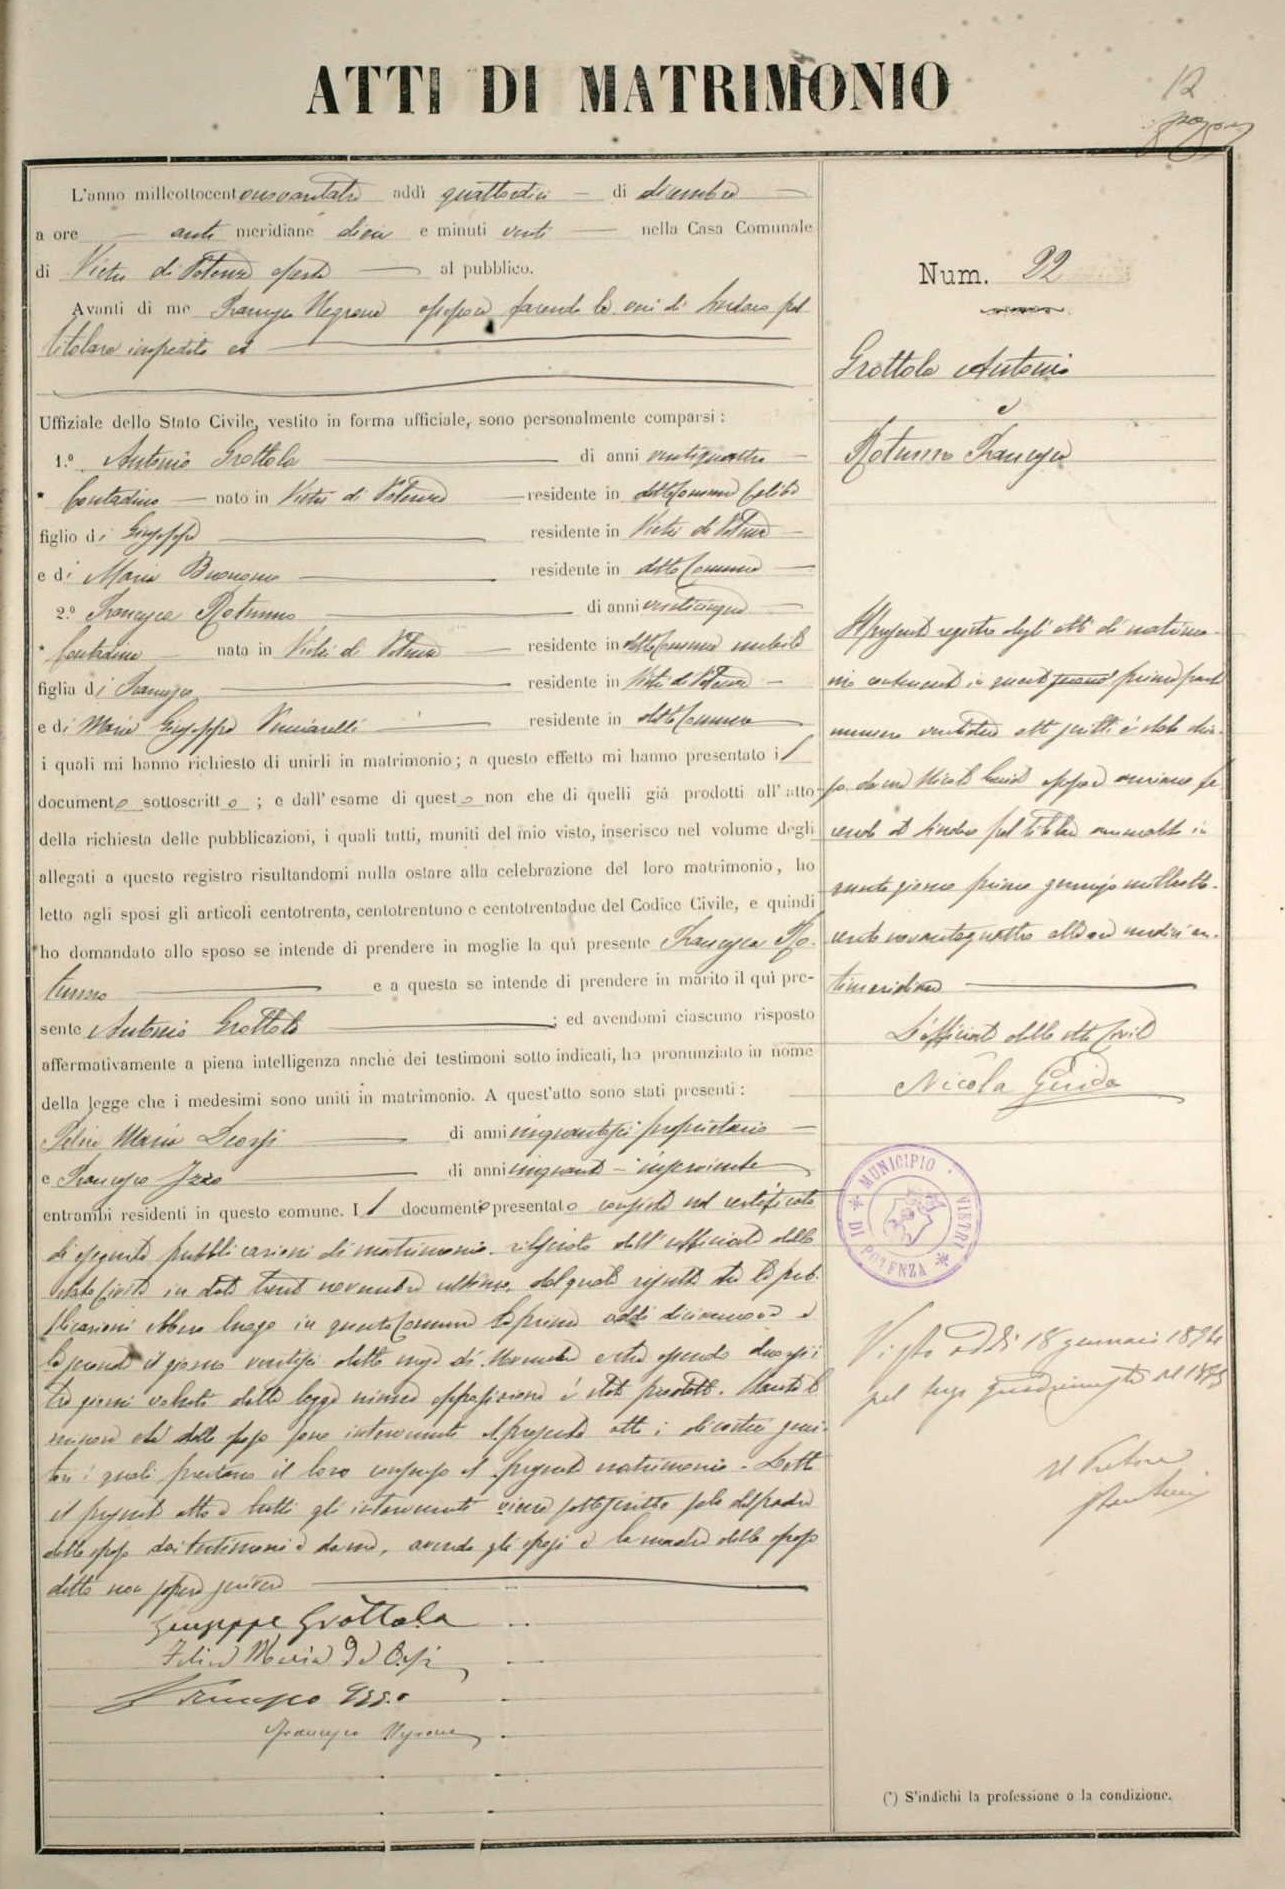 ATTI DI MATRIMONIO
12
L'anno millecottocento novantatre addì quattordici di dicembre
a ore anti meridiane dieci e minuti venti nella Casa Comunale
di Vietri di Potenza aperta al pubblico.
Avanti di me Francesco Negrone assessore facendo le veci di Sindaco pel
titolare impedito ed
Uffiziale dello Stato Civile, vestito in forma ufficiale, sono personalmente comparsi:
1.º Antonio Grottola di anni ventiquattro
* Contadino nato in Vietri di Potenza residente in detto Comune celibe
figlio di Giuseppe residente in Vietri di Potenza
e di Maria Buonomo residente in detto Comune
2.º Francesca Rotunno di anni venticinque
* Contadina nata in Vietri di Potenza residente in detto Comune nubile
figlia di Francesco residente in Vietri di Potenza
e di Maria Giuseppa residente in detto Comune
i quali mi hanno richiesto di unirli in matrimonio; a questo effetto mi hanno presentato il
documento sottoscritto; e dall'esame di questo non che di quelli già prodotti all'atto
della richiesta delle pubblicazioni, i quali tutti, muniti del mio visto, inserisco nel volume degli
allegati a questo registro risultandomi nulla ostare alla celebrazione del loro matrimonio, ho
letto agli sposi gli articoli centotrenta, centotrentuno e centotrentadue del Codice Civile, e quindi
*ho domandato allo sposo se intende di prendere in moglie la quì presente Francesca Ro-
tunno e a questa se intende di prendere in marito il quì pre-
sente Antonio Grottola ; ed avendomi ciascuno risposto
affermativamente a piena intelligenza anche dei testimoni sotto indicati, ho pronunziato in nome
della legge che i medesimi sono uniti in matrimonio. A quest'atto sono stati presenti:
Felice Maria di anni cinquantasei proprietario
e Francesco Izzo di anni cinquanta inserviente
entrambi residenti in questo comune. Il documento presentato consiste nel certificato
di eseguite pubblicazioni di matrimonio rilasciato dall'uffiziale dello
stato Civile in data trenta novembre ultimo, dal quale risulta che le pub-
blicazioni ebbero luogo in questo Comune la prima addì diciannove e
la seconda il giorno ventisei detto mese di Novembre ed essendo decorsi i
tre giorni voluti dalla legge niuna opposizione è stata prodotta. Stante la
minore età dello sposo sono intervenuti al presente atto i di costui geni-
tori i quali prestano il loro consenso al presente matrimonio. Letto
il presente atto a tutti gli intervenuti viene sottoscritto solo dal padre
dello sposo dai testimoni e da me, avendo gli sposi e la madre dello sposo
detto non sapere scrivere
Giuseppe Grottola
Felice Maria De
Francesco Izzo
Francesco Negrone
Num. 22
Grottola Antonio
e
Rotunno Francesca
Il presente registro degli atti di matrimo-
nio contenente in questa prima parte
numero ventidue atti scritti è stato chiu-
so da me Nicola Guida assessore anziano fa-
cendo da Sindaco pel titolare ammalato in
questo giorno primo gennajo milleotto-
cento novantaquattro alle ore undici an-
timeridiane
L'uffiziale dello stato Civile
Nicola Guida
* MUNICIPIO * DI VIETRI * DI POTENZA
Visto addì 18 gennaio 1894
pel terzo quadrimestre del 1893
Il Pretore
(*) S'indichi la professione o la condizione.